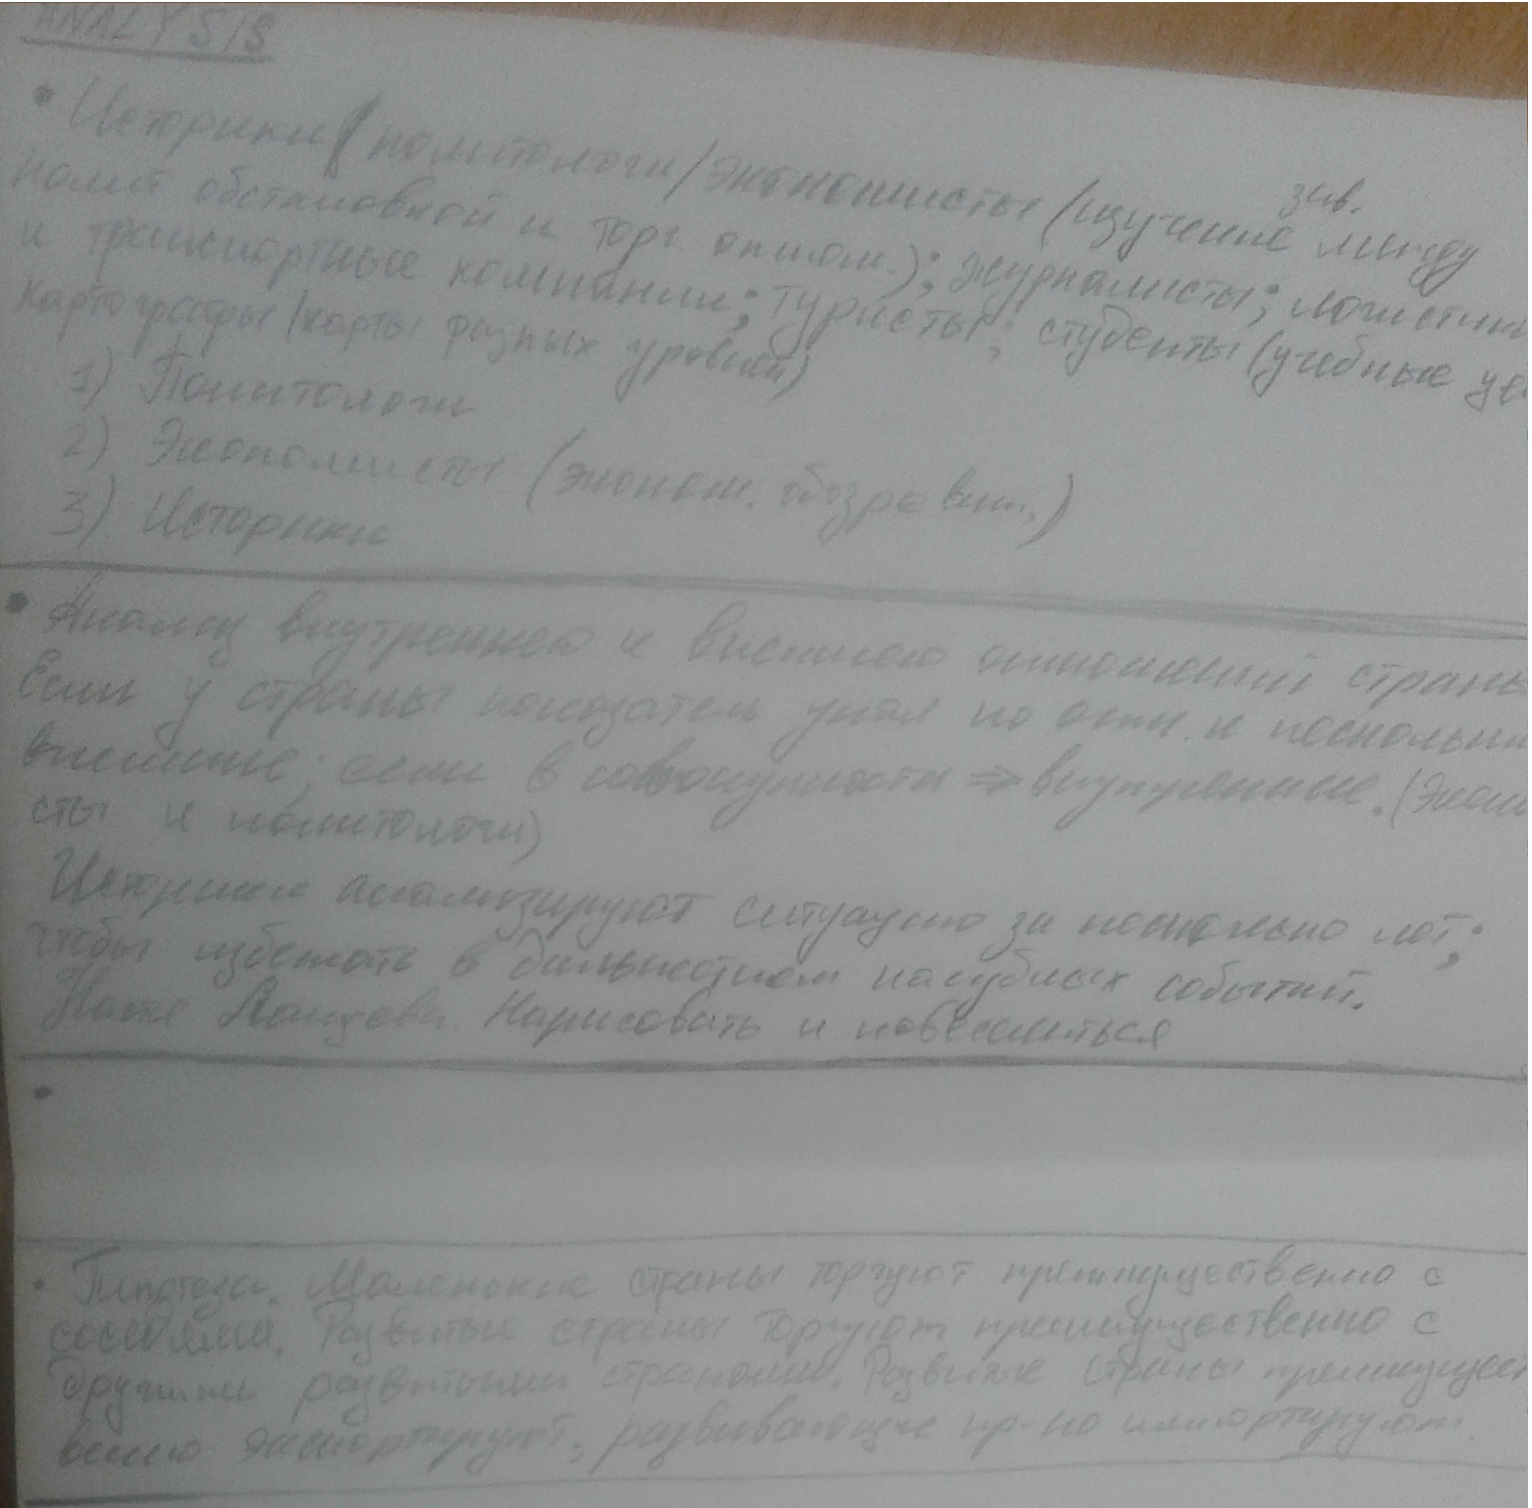 ANALYSIS
• Историки / политологи / экономисты (изучение зав. между
полит обстановкой и торг. отнош.); журналисты; логистич
и транспортные компании; туристы; студенты (учебные це
картографы (карты разных уровней)
1) Политологи
2) Экономисты (эконом. обозреват.)
3) Историки
• Анализ внутренних и внешних отношений страны
Если у страны показатель упал по отн. к нескольким
внешние; если в совокупности ⇒ внутренние. (Эконо
сты и политологи)
Историки анализируют ситуацию за несколько лет;
чтобы избежать в дальнейшем пагубных событий.
Нарисовать и повеселиться
•
• Гипотеза. Маленькие страны торгуют преимущественно с
соседями. Развитые страны торгуют преимущественно с
другими развитыми странами. Развитые страны преимущест
венно экспортируют, развивающие пр-но импортируют.